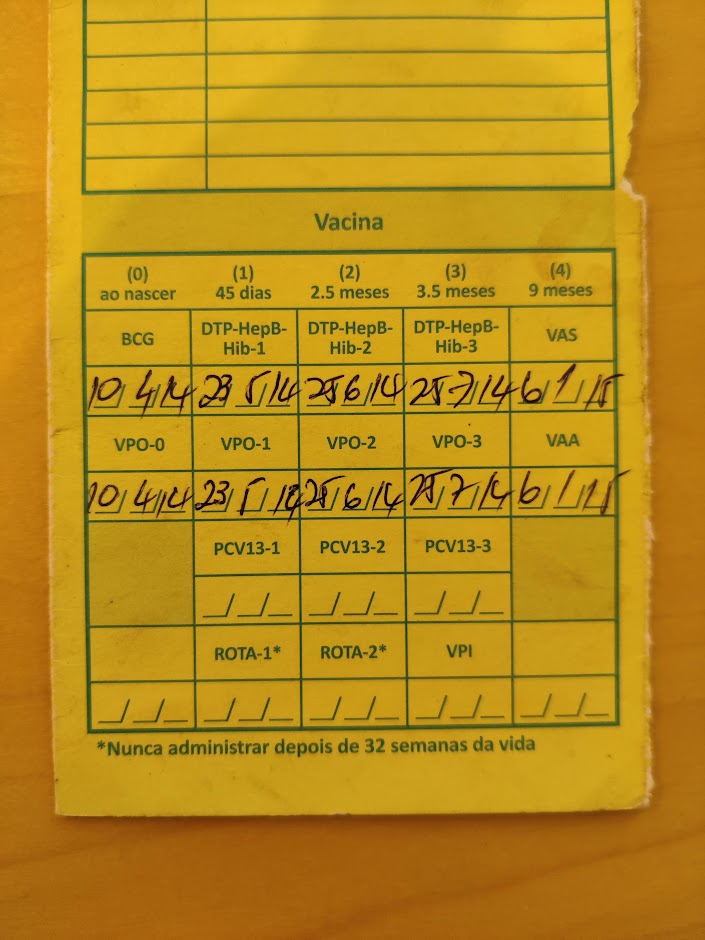 Vacina
(0) (1) (2) (3) (4)
ao nascer 45 dias 2.5 meses 3.5 meses 9 meses
BCG DTP-HepB-Hib-1 DTP-HepB-Hib-2 DTP-HepB-Hib-3 VAS
10/4/14 23/5/14 25/6/14 25/7/14 6/1/15
VPO-0 VPO-1 VPO-2 VPO-3 VAA
10/4/14 23/5/14 25/6/14 25/7/14 6/1/15
PCV13-1 PCV13-2 PCV13-3
__/__/__ __/__/__ __/__/__
ROTA-1* ROTA-2* VPI
__/__/__ __/__/__ __/__/__ __/__/__ __/__/__
*Nunca administrar depois de 32 semanas da vida